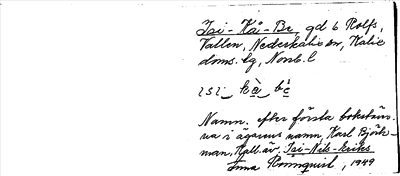 Isi-Kå-Be, gd 6 Rolfs,
Vallen, Nederkalix sn, Kalix
doms.lg, Norrb.l
Namn. efter första bokstäver-
na i ägarens namn, Karl Björk-
man, Kall. äv. Isi-Nils-Eriks
Rönnquist, 1949